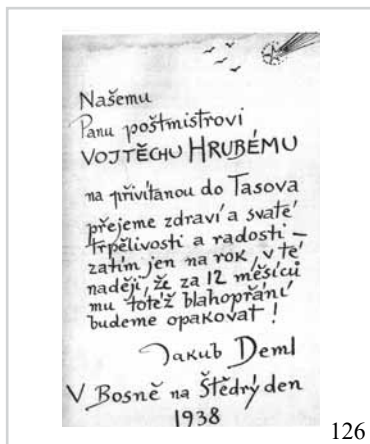 Našemu
Panu poštmistrovi
VOJTĚCHU HRUBÉMU
na přivítanou do Tasova
přejeme zdraví a svaté
trpělivosti a radosti –
zatím jen na rok, v té
naději, že za 12 měsíců
mu totéž blahopřání
budeme opakovat!
Jakub Deml
V Bosně na Štědrý den
1938
126